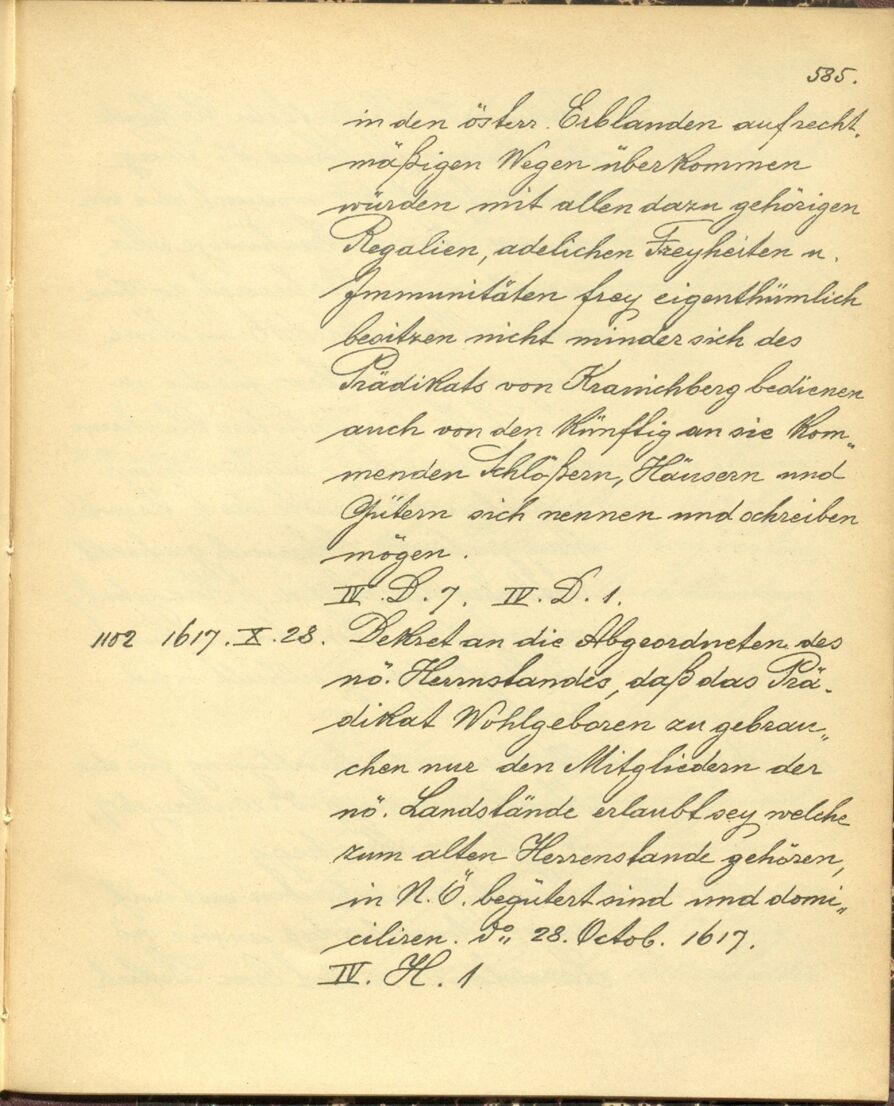 585.
in den österr. Erblanden auf recht„
mäßigen Wegen überkommen
würden mit allen dazu gehörigen
Regalien, adelichen Freyheiten u.
Immunitäten frey eigenthümlich
besitzen nicht minder sich des
Prädikats von Kranichberg bedienen
auch von den künftig an sie kom„
menden Schlößern, Häusern und
Gütern sich nennen und schreiben
mögen.
IV. D. 7. IV. D. 1.
1102 1617. X. 28. Dekret an die Abgeordneten des
nö. Herrnstandes, daß das Prä„
dikat Wohlgeboren zu gebrau„
chen nur den Mitgliedern der
nö. Landstände erlaubt sey welche
zum alten Herrenstande gehören,
in N. Ö. begütert sind und domi„
ciliren. do 28. Octob. 1617.
IV. H. 1